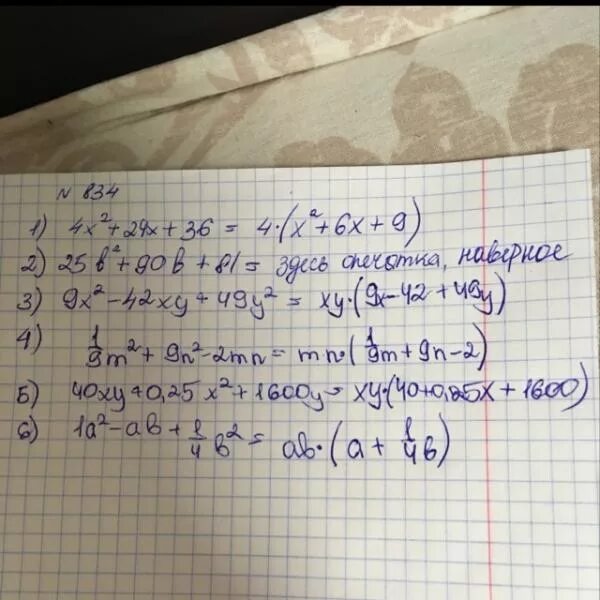 N 834
1) 4x²+24x+36 = 4·(x²+6x+9)
2) 25b²+90b+81= здесь опечатка, наверное
3) 9x²-42xy+49y² = xy·(9x-42+49y)
4) 1/9m²+9n²-2mn= mn·(1/9m+9n-2)
5) 40xy+0,25x²+1600y= xy·(40+0,25x+1600)
6) 1a²-ab+1/4b²= ab·(a+1/4b)